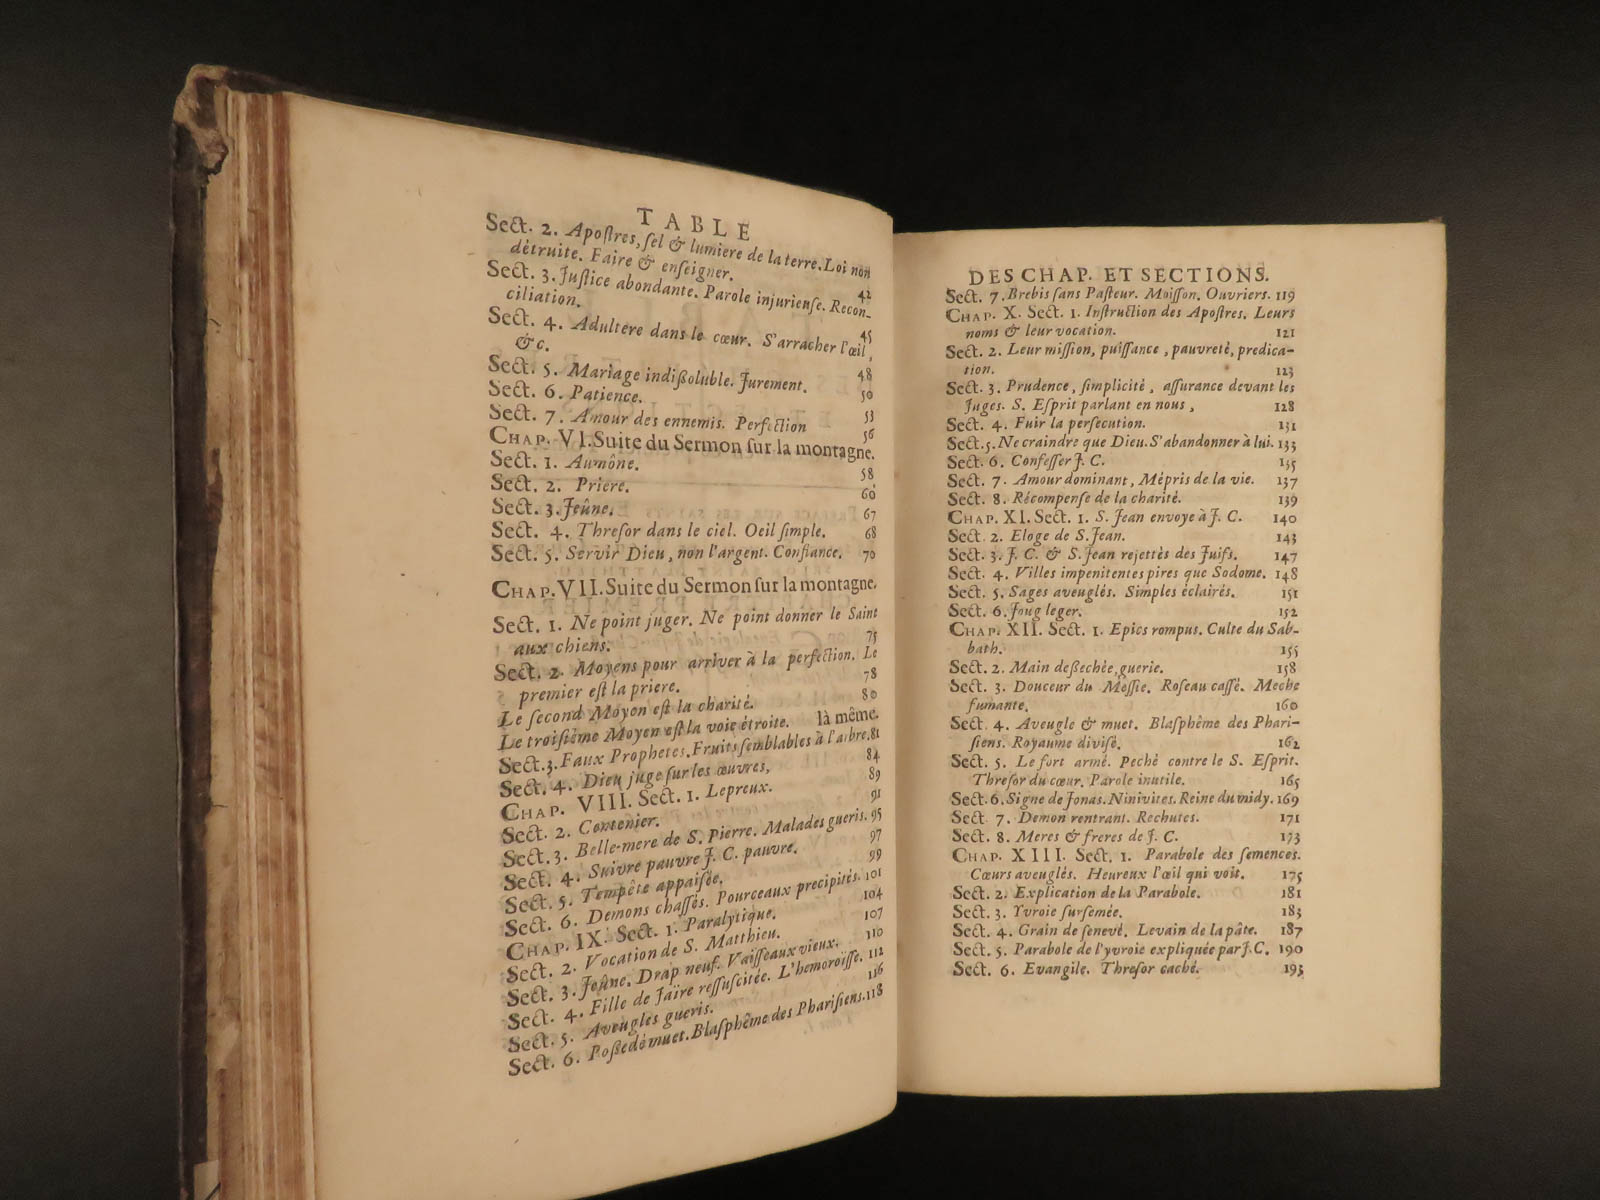 TABLE
Sect. 2. Apoſtres, ſel & lumiere de la terre. Loi non
détruite. Faire & enſeigner. 42
Sect. 3. Juſtice abondante. Parole injurieuſe. Recon-
ciliation. 45
Sect. 4. Adultere dans le cœur. S'arracher l'œil,
&c. 48
Sect. 5. Mariage indiſſoluble. Jurement. 50
Sect. 6. Patience. 53
Sect. 7. Amour des ennemis. Perfection 56
CHAP. VI. Suite du Sermon ſur la montagne.
Sect. 1. Aumône. 58
Sect. 2. Priere. 60
Sect. 3. Jeûne. 67
Sect. 4. Threſor dans le ciel. Oeil ſimple. 68
Sect. 5. Servir Dieu, non l'argent. Confiance. 70
CHAP. VII. Suite du Sermon ſur la montagne.
Sect. 1. Ne point juger. Ne point donner le Saint
aux chiens. 75
Sect. 2. Moyens pour arriver à la perfection. Le
premier eſt la priere. 78
Le ſecond Moyen eſt la charité. 80
Le troiſiéme Moyen eſt la voie étroite. là même.
Sect. 3. Faux Prophetes. Fruits ſemblables à l'arbre. 81
Sect. 4. Dieu juge ſur les œuvres, 84
CHAP. VIII. Sect. 1. Lepreux. 89
Sect. 2. Centenier. 91
Sect. 3. Belle-mere de S. Pierre. Malades gueris. 95
Sect. 4. Suivre pauvre J. C. pauvre. 97
Sect. 5. Tempête appaiſée. 99
Sect. 6. Demons chaſſés. Pourceaux precipités. 101
CHAP. IX. Sect. 1. Paralytique. 104
Sect. 2. Vocation de S. Matthieu. 107
Sect. 3. Jeûne. Drap neuf. Vaiſſeaux vieux. 110
Sect. 4. Fille de Jaïre reſſuſcitée. L'hemoroïſſe. 112
Sect. 5. Aveugles gueris. 116
Sect. 6. Poſſedé muet. Blaſphême des Phariſiens. 118
DES CHAP. ET SECTIONS.
Sect. 7. Brebis ſans Paſteur. Moiſſon. Ouvriers. 119
CHAP. X. Sect. 1. Inſtruction des Apoſtres. Leurs
noms & leur vocation. 121
Sect. 2. Leur miſſion, puiſſance, pauvreté, predica-
tion. 123
Sect. 3. Prudence, ſimplicité, aſſurance devant les
Juges. S. Eſprit parlant en nous, 128
Sect. 4. Fuir la perſecution. 131
Sect. 5. Ne craindre que Dieu. S'abandonner à lui. 133
Sect. 6. Confeſſer J. C. 135
Sect. 7. Amour dominant, Mépris de la vie. 137
Sect. 8. Récompenſe de la charité. 139
CHAP. XI. Sect. 1. S. Jean envoye à J. C. 140
Sect. 2. Eloge de S. Jean. 143
Sect. 3. J. C. & S. Jean rejettés des Juifs. 147
Sect. 4. Villes impenitentes pires que Sodome. 148
Sect. 5. Sages aveuglés. Simples éclairés. 151
Sect. 6. Joug leger. 152
CHAP. XII. Sect. 1. Epics rompus. Culte du Sab-
bath. 155
Sect. 2. Main deſſechée, guerie. 158
Sect. 3. Douceur du Meſſie. Roſeau caſſé. Meche
fumante. 160
Sect. 4. Aveugle & muet. Blaſphême des Phari-
ſiens. Royaume diviſé. 162
Sect. 5. Le fort armé. Peché contre le S. Eſprit.
Threſor du cœur. Parole inutile. 165
Sect. 6. Signe de Jonas. Ninivites. Reine du midy. 169
Sect. 7. Demon rentrant. Rechutes. 171
Sect. 8. Meres & freres de J. C. 173
CHAP. XIII. Sect. 1. Parabole des ſemences.
Cœurs aveuglés. Heureux l'œil qui voit. 175
Sect. 2. Explication de la Parabole. 181
Sect. 3. Yvroie ſurſemée. 183
Sect. 4. Grain de ſenevé. Levain de la pâte. 187
Sect. 5. Parabole de l'yvroie expliquée par J. C. 190
Sect. 6. Evangile. Threſor caché. 195